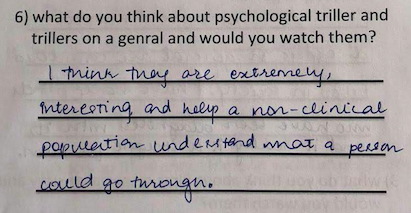 6) what do you think about psychological triller and
trillers on a genral and would you watch them?
I think they are extremely,
interesting and help a non-clinical
population understand what a person
could go through.